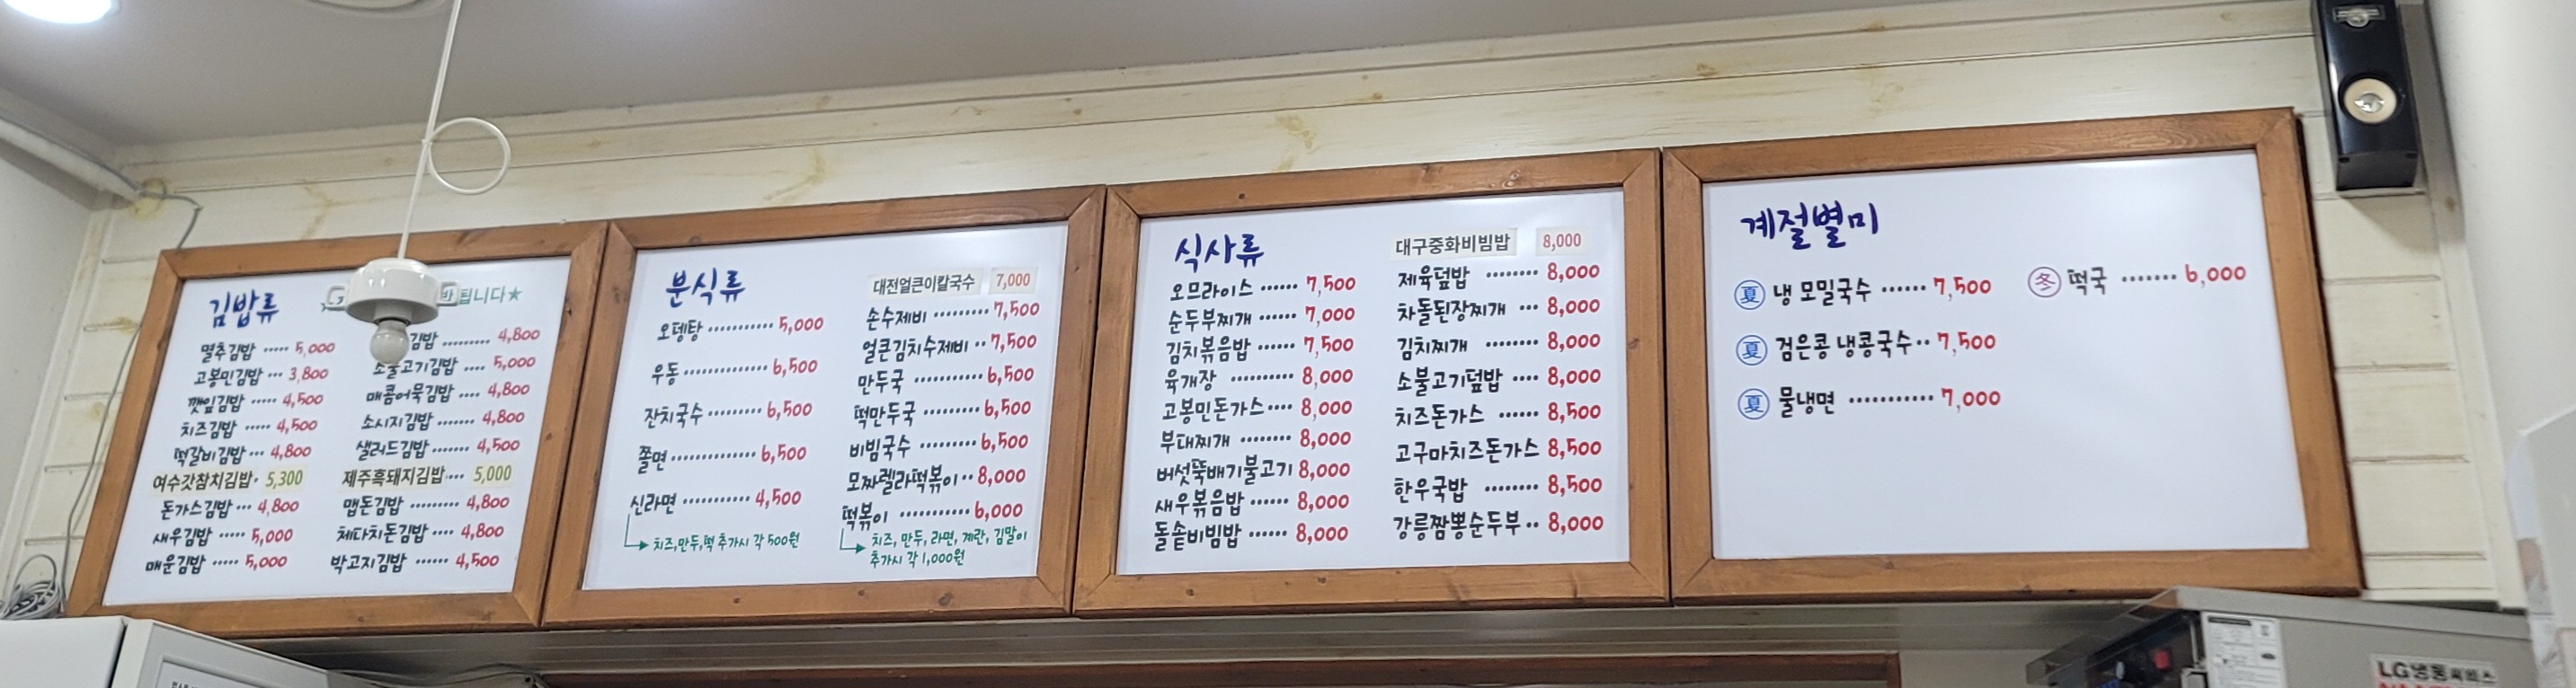 김밥류
됩니다★
멸추김밥 ····· 5,000
고봉민김밥 ··· 3,800
깻잎김밥 ····· 4,500
치즈김밥 ····· 4,500
떡갈비김밥 ··· 4,800
여수갓참치김밥· 5,300
돈가스김밥 ··· 4,800
새우김밥 ····· 5,000
매운김밥 ····· 5,000
김밥 ········· 4,800
소불고기김밥 .... 5,000
매콤어묵김밥 .... 4,800
소시지김밥 ······· 4,800
샐러드김밥 ······· 4,500
제주흑돼지김밥···· 5,000
맵돈김밥 ········· 4,800
체다치돈김밥 ···· 4,800
박고지김밥 ······ 4,500
분식류
오뎅탕 ··········· 5,000
우동 ············· 6,500
잔치국수 ········· 6,500
쫄면 ············· 6,500
신라면 ··········· 4,500
치즈,만두,떡 추가시 각 500원
대전얼큰이칼국수 7,000
손수제비 ········· 7,500
얼큰김치수제비 ·· 7,500
만두국 ··········· 6,500
떡만두국 ········· 6,500
비빔국수 ········· 6,500
모짜렐라떡볶이 ·· 8,000
떡볶이 ··········· 6,000
치즈, 만두, 라면, 계란, 김말이
추가시 각 1,000원
식사류
오므라이스 ······ 7,500
순두부찌개 ······ 7,000
김치볶음밥 ······ 7,500
육개장 ·········· 8,000
고봉민돈가스···· 8,000
부대찌개 ········ 8,000
버섯뚝배기불고기 8,000
새우볶음밥 ······ 8,000
돌솥비빔밥 ······ 8,000
대구중화비빔밥 8,000
제육덮밥 ········ 8,000
차돌된장찌개 ··· 8,000
김치찌개 ········ 8,000
소불고기덮밥 ···· 8,000
치즈돈가스 ······ 8,500
고구마치즈돈가스 8,500
한우국밥 ········ 8,500
강릉짬뽕순두부·· 8,000
계절별미
夏 냉 모밀국수 ······ 7,500
夏 검은콩 냉콩국수·· 7,500
夏 물냉면 ··········· 7,000
冬 떡국 ······· 6,000
LG냉동써비스